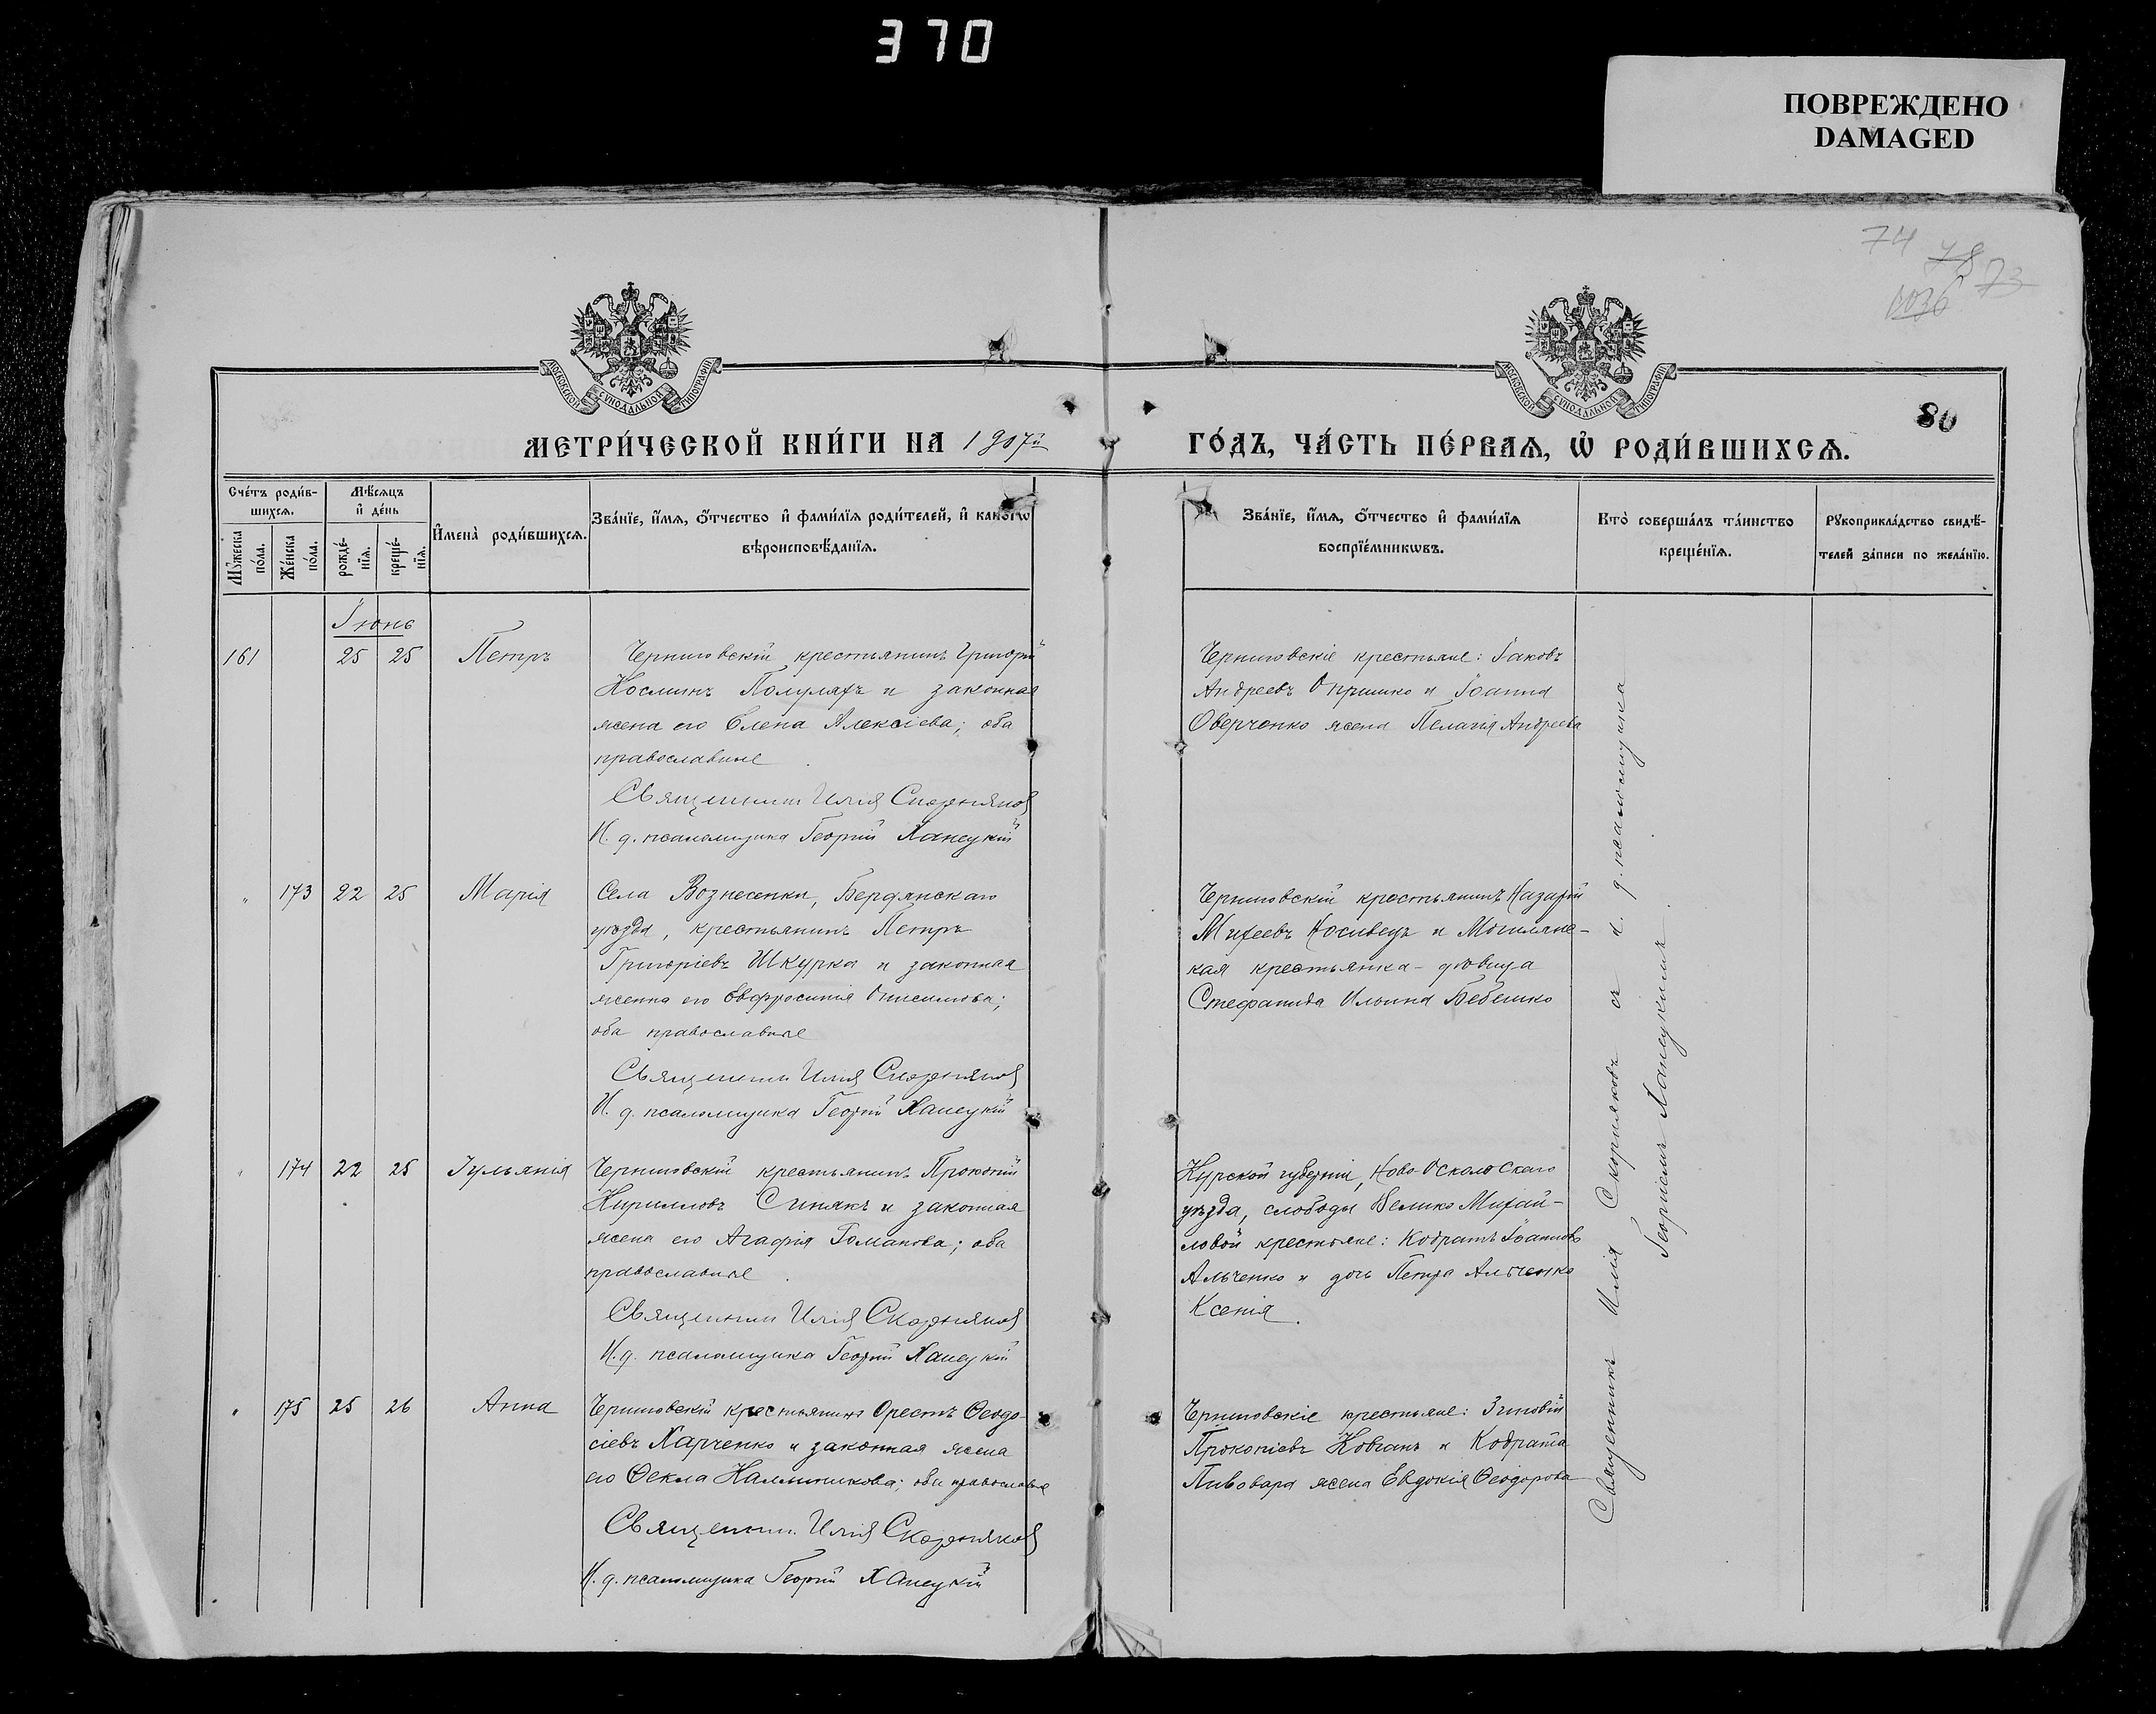 370
ПОВРЕЖДЕНО
DAMAGED
74 78 73
1036
80
МОСКОВСКОЙ СУНОДАЛЬНОЙ ТИПОГРАФІИ
МОСКОВСКОЙ СУНОДАЛЬНОЙ ТИПОГРАФІИ
МЕТРИ́ЧЕСКОЙ КНИ́ГИ НА 1907й
ГО́ДЪ, ЧА́СТЬ ПЕ́РВАѦ, Ѡ РОДИ́ВШИХСѦ.
Сче́тъ роди́в-
шихсѧ.
Мꙋ́жеска по́ла.
Же́нска по́ла.
Мѣ́сѧцъ
и҆ де́нь
рожде́-
нїѧ.
креще́-
нїѧ.
И҆мена̀ роди́вшихсѧ.
Зва́нїе, и҆́мѧ, ѻ҆́тчество и҆ фами́лїѧ роди́телей, и҆ како́гѡ
вѣроисповѣ́данїѧ.
Зва́нїе, и҆́мѧ, ѻ҆́тчество и҆ фами́лїѧ
воспрїе́мникѡвъ.
Кто̀ соверша́лъ та́инство
креще́нїѧ.
Рꙋкоприкла́дство свидѣ́-
телей за́писи по жела́нїю.
Іюнь
161 25 25 Петръ
Черниговскій крестьянинъ Григорій
Косминъ Полуляхъ и законная
жена его Елена Алексіева; оба
православные
Священникъ Илія Скорняков
И. д. псаломщика Георгій Ханецкій
Черниговскіе крестьяне: Іаковъ
Андреевъ Опришко и Іоанна
Оверченко жена Пелагія Андреева
" 173 22 25 Марія
Села Вознесенки, Бердянскаго
уѣзда, крестьянинъ Петръ
Григоріевъ Шкурка и законная
женна его Евфросинія Онисимова;
оба православные
Священникъ Илія Скорняков
И. д. псаломщика Георгій Ханецкій
Черниговскій крестьянинъ Назарій
Михеевъ Носивецъ и Могилянс-
кая крестьянка-дѣвица
Стефанида Ильина Бебешко
" 174 22 25 Іульянія
Черниговскій крестьянинъ Прокопій
Кирилловъ Синякъ и законная
жена его Агафія Романова; оба
православные
Священникъ Илія Скорняков
И. д. псаломщика Георгій Ханецкій
Курской губерніи, Ново-Осколоскаго
уѣзда, слободы Велико Михай-
ловой крестьяне: Кодратъ Іоанновъ
Альченко и дочь Петра Альченко
Ксенія.
" 175 25 26 Анна
Черниговскій крестьянинъ Орестъ Ѳеодо-
сіевъ Харченко и законная жена
его Ѳекла Каллиникова; оба православные
Священникъ Илія Скорняков
И. д. псаломщика Георгій Ханецкій
Черниговскіе крестьяне: Зиновій
Прокопіевъ Ковганъ и Кодрата
Пивовара жена Евдокія Ѳеодорова
Священникъ Илія Скорняковъ съ и. д. псаломщика
Георгіемъ Ханецкимъ.